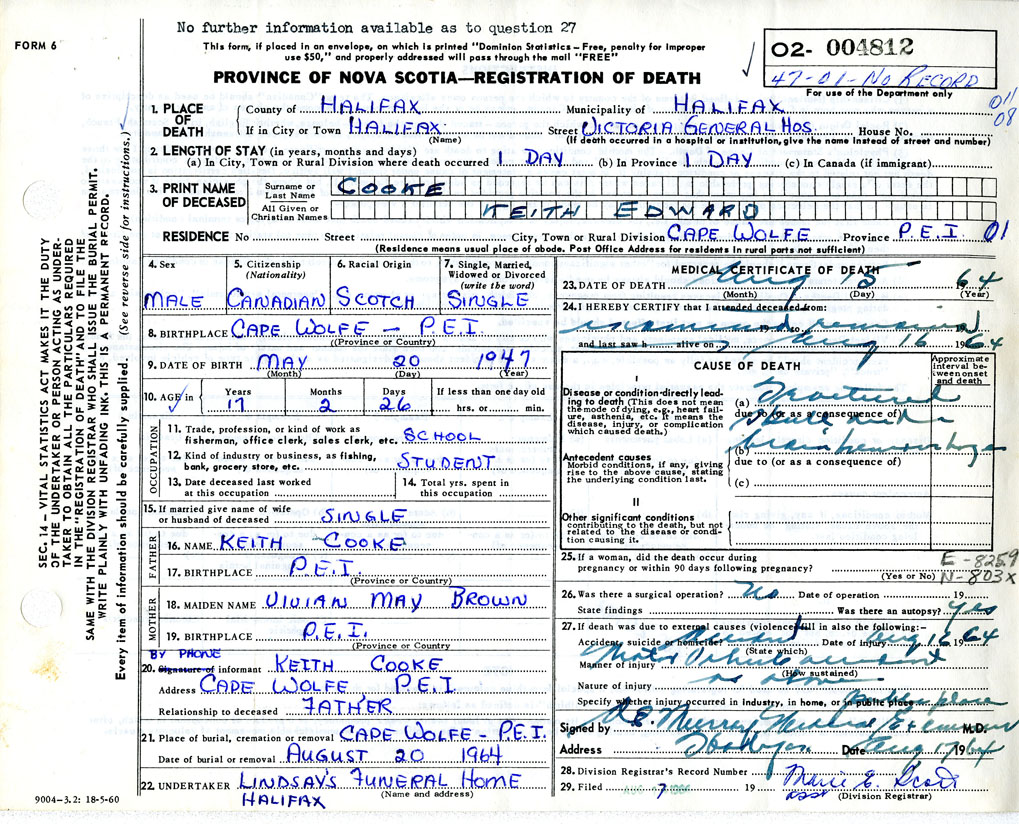 No further information available as to question 27
FORM 6
This form, if placed in an envelope, on which is printed "Dominion Statistics – Free, penalty for improper
use $50," and properly addressed will pass through the mail "FREE"
02- 004812
47-01-No RECORD
For use of the Department only
PROVINCE OF NOVA SCOTIA—REGISTRATION OF DEATH
011
08
1. PLACE OF DEATH
County of HALIFAX Municipality of HALIFAX
If in City or Town HALIFAX (Name) Street VICTORIA GENERAL HOS. House No.
(If death occurred in a hospital or institution, give the name instead of street and number)
2. LENGTH OF STAY (in years, months and days)
(a) In City, Town or Rural Division where death occurred 1 DAY (b) In Province 1 DAY (c) In Canada (if immigrant)
3. PRINT NAME OF DECEASED
Surname or Last Name COOKE
All Given or Christian Names KEITH EDWARD
RESIDENCE No Street City, Town or Rural Division CAPE WOLFE Province P.E.I. 01
(Residence means usual place of abode. Post Office Address for residents in rural parts not sufficient)
4. Sex MALE
5. Citizenship (Nationality) CANADIAN
6. Racial Origin SCOTCH
7. Single, Married, Widowed or Divorced (write the word) SINGLE
8. BIRTHPLACE CAPE WOLFE – P.E.I.
(Province or Country)
9. DATE OF BIRTH MAY 20 1947
(Month) (Day) (Year)
10. AGE in Years 17 Months 2 Days 26 If less than one day old hrs. or min.
OCCUPATION
11. Trade, profession, or kind of work as
fisherman, office clerk, sales clerk, etc. SCHOOL
12. Kind of industry or business, as fishing,
bank, grocery store, etc. STUDENT
13. Date deceased last worked
at this occupation
14. Total yrs. spent in
this occupation
15. If married give name of wife
or husband of deceased SINGLE
FATHER
16. NAME KEITH COOKE
17. BIRTHPLACE P.E.I.
(Province or Country)
MOTHER
18. MAIDEN NAME VIVIAN MAY BROWN
19. BIRTHPLACE P.E.I.
(Province or Country)
BY PHONE
20. Signature of informant KEITH COOKE
Address CAPE WOLFE P.E.I
Relationship to deceased FATHER
21. Place of burial, cremation or removal CAPE WOLFE - P.E.I.
Date of burial or removal AUGUST 20 1964
22. UNDERTAKER LINDSAY'S FUNERAL HOME
(Name and address)
HALIFAX
9004–3.2: 18-5-60
MEDICAL CERTIFICATE OF DEATH
23. DATE OF DEATH Aug 15 64
(Month) (Day) (Year)
24. I HEREBY CERTIFY that I attended deceased from:
examined remains
19 to
and last saw h alive on Aug 16 1964
CAUSE OF DEATH
Approximate interval between onset and death
I
Disease or condition directly leading to death (This does not mean the mode of dying, e.g., heart failure, asthenia, etc. It means the disease, injury, or complication which caused death.)
(a) Fractured
due to (or as a consequence of)
skull and
(b) brain hemorrhage
due to (or as a consequence of)
(c)
Antecedent causes
Morbid conditions, if any, giving rise to the above cause, stating the underlying condition last.
II
Other significant conditions
contributing to the death, but not related to the disease or condition causing it.
25. If a woman, did the death occur during
pregnancy or within 90 days following pregnancy?
(Yes or No)
E-8259
N-803X
26. Was there a surgical operation? No Date of operation 19
State findings Was there an autopsy? yes
27. If death was due to external causes (violence) fill in also the following:—
Accident, suicide or homicide? Accident Date of injury Aug 1964
(State which)
Manner of injury Motor Vehicle accident
(How sustained)
Nature of injury as above
Specify whether injury occurred in industry, in home, or in public place Public place
Signed by Murray Medical Examiner M.D.
Address Date Aug 17 1964
28. Division Registrar's Record Number
29. Filed 19 Marie E. Scott
asst (Division Registrar)
SEC. 14 – VITAL STATISTICS ACT MAKES IT THE DUTY
OF THE UNDERTAKER OR PERSON ACTING AS UNDER-
TAKER TO OBTAIN ALL THE PARTICULARS REQUIRED
IN THE "REGISTRATION OF DEATH" AND TO FILE THE
SAME WITH THE DIVISION REGISTRAR WHO SHALL ISSUE THE BURIAL PERMIT.
WRITE PLAINLY WITH UNFADING INK. THIS IS A PERMANENT RECORD.
Every item of information should be carefully supplied. (See reverse side for instructions.)